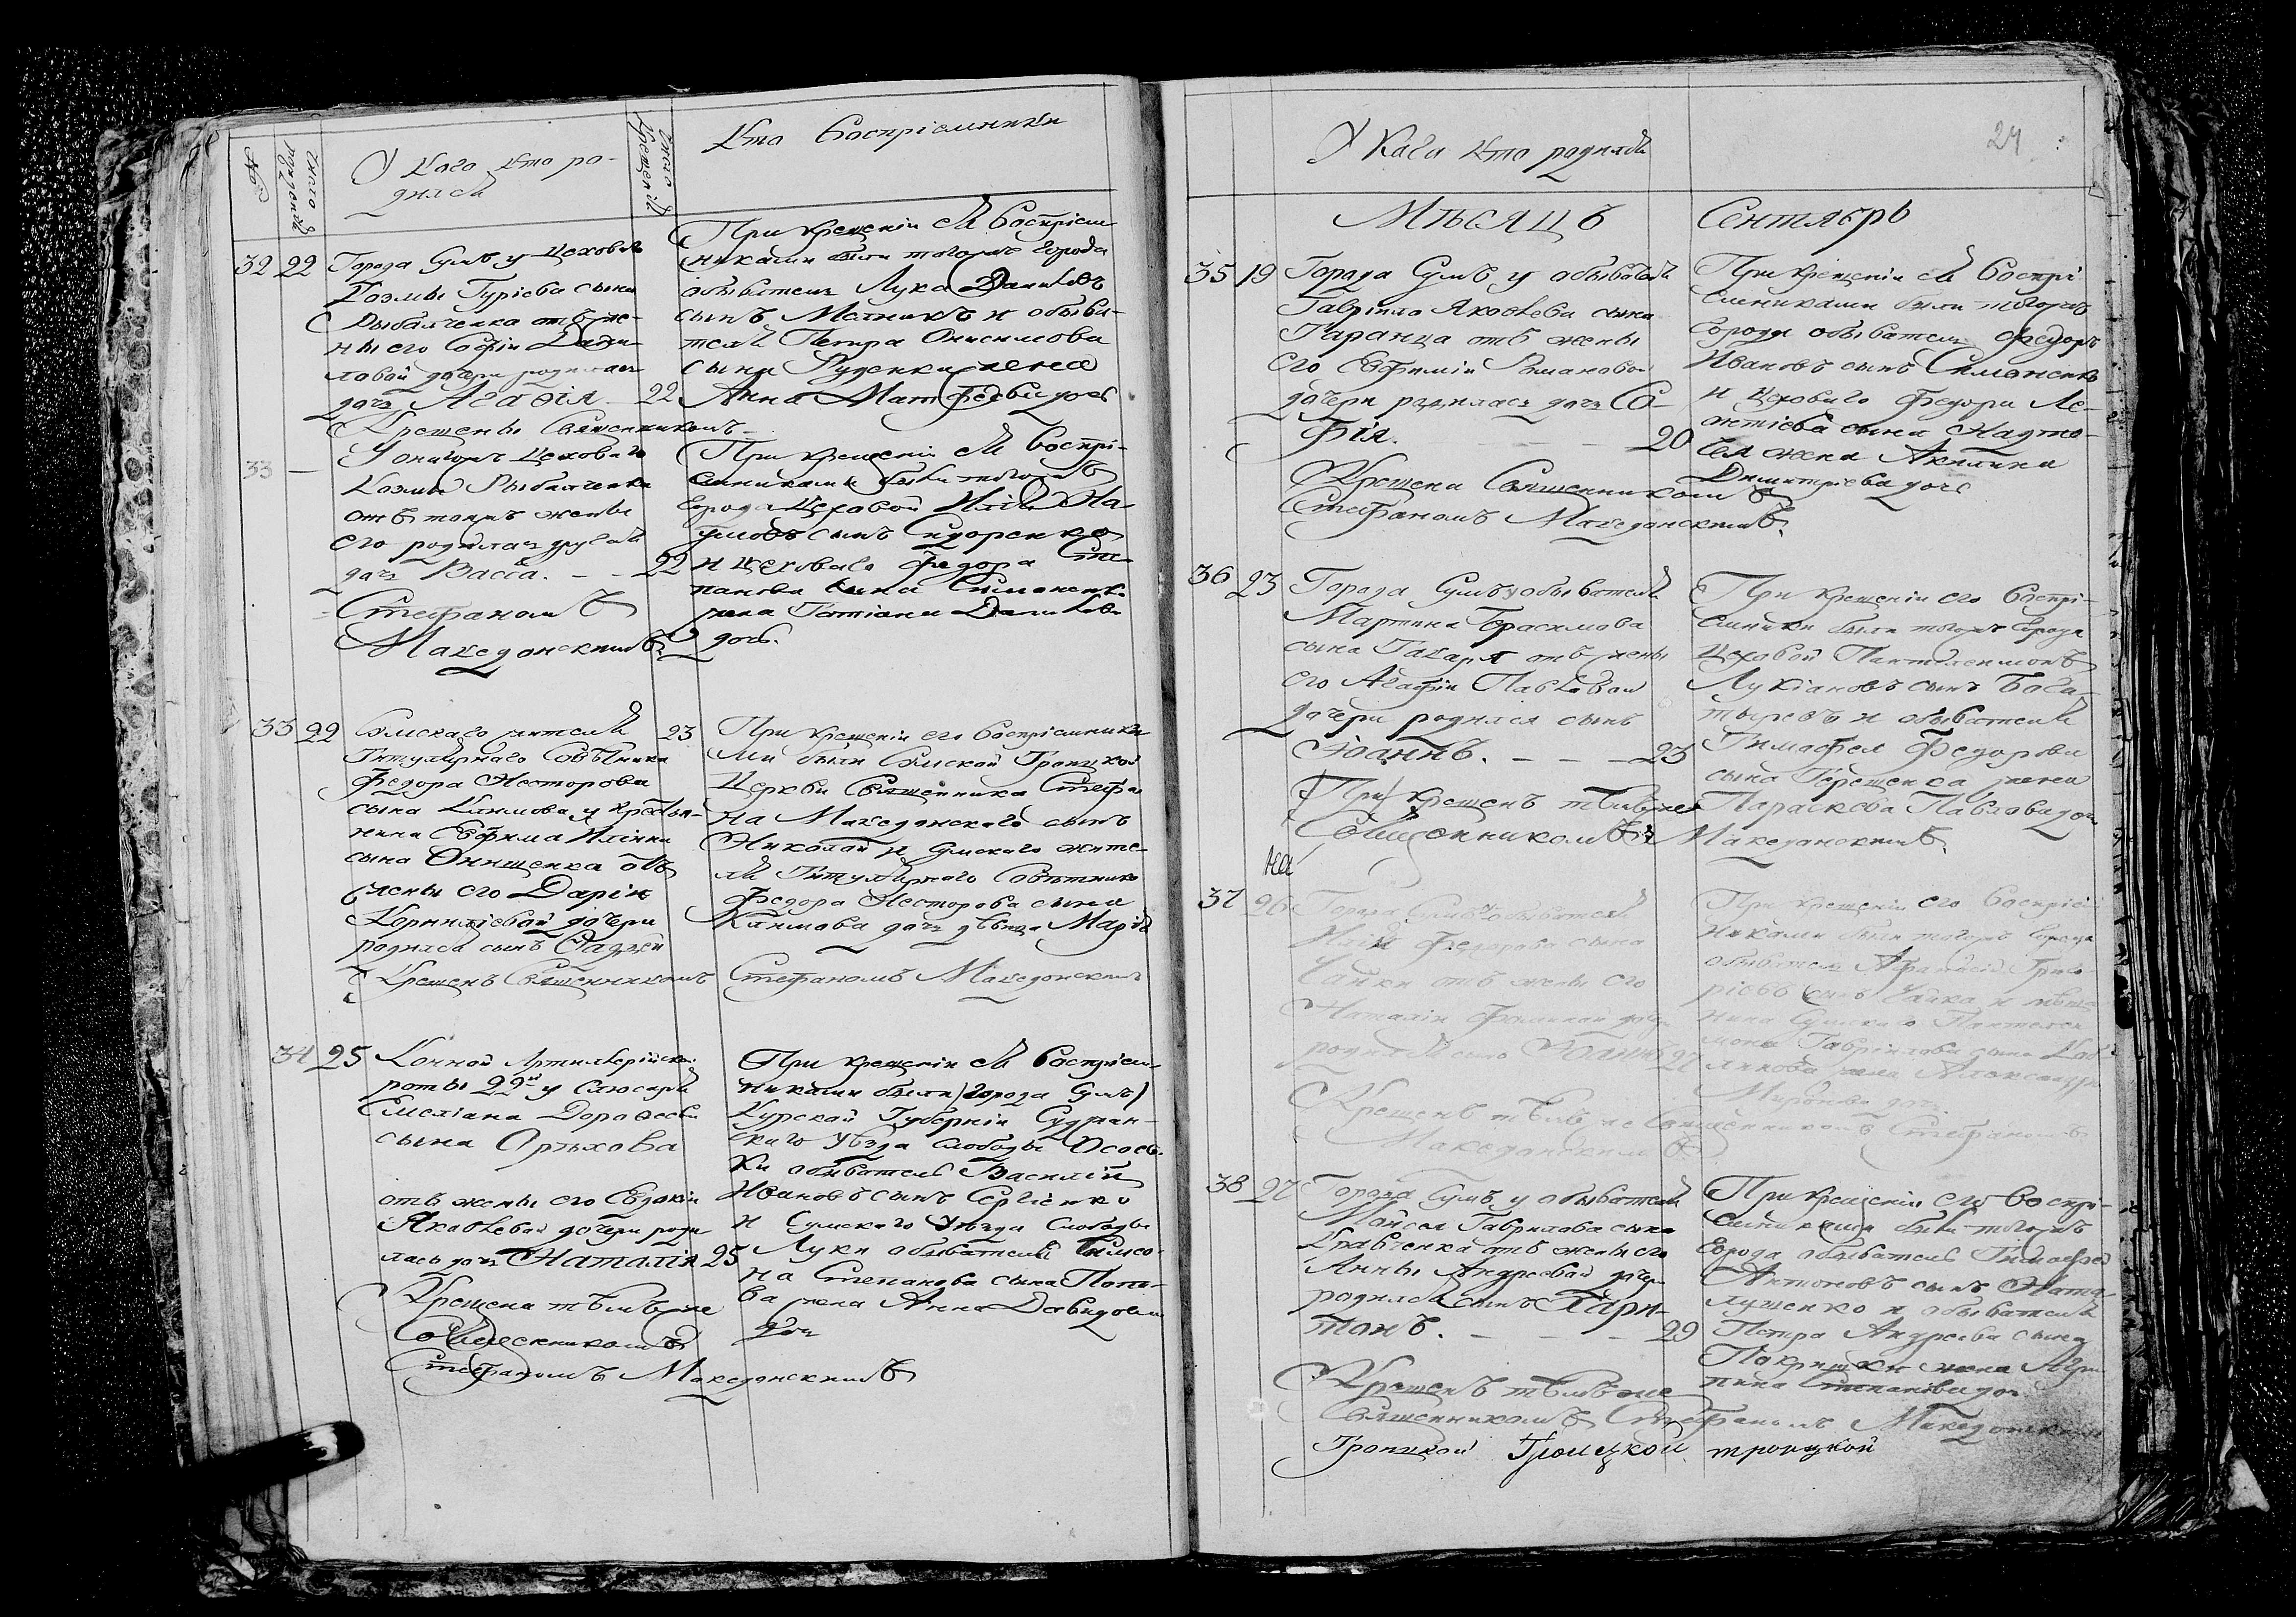 №
Число рожденій
У Кого Кто ро-
дился
Число Крещенія
Кто Воспріемники
32 22
Города Сумъ у цеховаго
Козмы Гуріева сына
Рыбалченка отъ же-
ны его Софіи Дани-
ловой дочери родилась
дочь Агафія 22
Крещены Священникомъ
При крещеніи ея воспріем
никами были тогожъ города
обыватель Лука Даниловъ
сынъ Мелникъ и обыва-
теля Петра Онисимова
сына Руденки жена
Анна Матфеева дочь
33 —
У онагожъ цеховаго
Козмы Рыбалченка
отъ тоижъ жены
его родилась другая
дочь Васса. - - 22
Стефаномъ
Македонскимъ.
При крещеніи ея воспрі-
емниками были тогожъ
города цеховой Илія На-
умовъ сынъ Сидоренко
и цеховаго Федора Сте-
панова сына Симоненка
жена Татіана Данилова
дочь.
33 22
Сумскаго жителя 23
Титулярнаго Совѣтника
Федора Несторова
сына Климова у крестья-
нина Ефима Иліина
сына Онищенка отъ
жены его Даріи
Корниліевой дочери
родился сынъ Фаддей
Крещенъ Священникомъ Стефаномъ Македонскимъ
При крещеніи его воспріемника
ми были Сумской Троицкой
Церкви Священника Стефа
на Македонскаго сынъ
Николай и Сумскаго жите-
ля Титулярнаго Совѣтника
Федора Несторова сына
Климова дочь дѣвица Марія
34 25
Конной Артиллерійской
роты 22й у слюсаря
Емеліана Дорофеева
сына Орѣхова
отъ жены его Евдокіи
Яковлевой дочери роди
лась дочь Наталія 25
Крещена тѣмъ же
Священникомъ
Стефаномъ Македонскимъ
При крещеніи ея воспріем-
никами были (города Сумъ)
Курской Губерніи Суджан-
скаго Уѣзда слободы
обыватель Василій
Ивановъ сынъ Сергіенко
и Сумскаго Уѣзда Слободы
Луки обывателя
на Степанова сына Попо-
ва жена Анна Давидова
дочь
У Кого Кто родился
24
МѢСЯЦЪ Сентябрь
35 19
Города Сумъ у обывателя
Гавріила Яковлева сына
Таранца отъ жены
его Евфиміи Романовой
дочери родилась дочь Со-
фія. - - - 20
Крещена Священникомъ
Стефаномъ Македонскимъ.
При крещеніи ея воспрі
емниками были тогожъ
города обыватель Федоръ
Ивановъ сынъ Симоненко
и цеховаго Федора Ле-
онтіева сына
жена Акилина
Димитріева дочь
36 23
Города Сумъ у обывателя
Мартина Герасимова
сына Токаря отъ жены
его Агафіи Павловой
дочери родился сынъ
Іоаннъ. - - - 23
При крещенъ тѣмъ же
Священникомъ Македонскимъ.
При крещеніи его воспрі-
емники были тогожъ города
цеховой Пантелеимонъ
Лукіановъ сынъ Бога-
тыревъ и обывателя
Тимофея Федорова
сына Терещенка жена
Параскева Павлова дочь
на
37 26
Города Сумъ у обывателя
Иліи Федорова сына
Чайки отъ жены его
Наталіи дочери
родился сынъ Іоаннъ 27
Крещенъ тѣмъ же Священникомъ Стефаномъ
Македонскимъ
При крещеніи его воспріем
никами были тогожъ города
обыватель Афанасій Григо-
ріевъ сынъ Чайка и мѣща
нина Сумскаго Пантелеи
мона Гавріилова сына
жена Александра
Миронова дочь
38 27
Города Сумъ у обывателя
Мойсея Гаврилова сына
Кравченка отъ жены его
Анны Андреевой дочери
родился сынъ Хари-
тонъ. - - - 29
Крещенъ тѣмъ же
Священникомъ Стефаномъ Македонскимъ
Троицкой Троицкой троицкой
При крещеніи его воспрі-
емниками были тогожъ
города обыватель Тимофей
Антоновъ сынъ
и обывателя
Петра Андреева сына
жена Агри
пина Степанова дочь